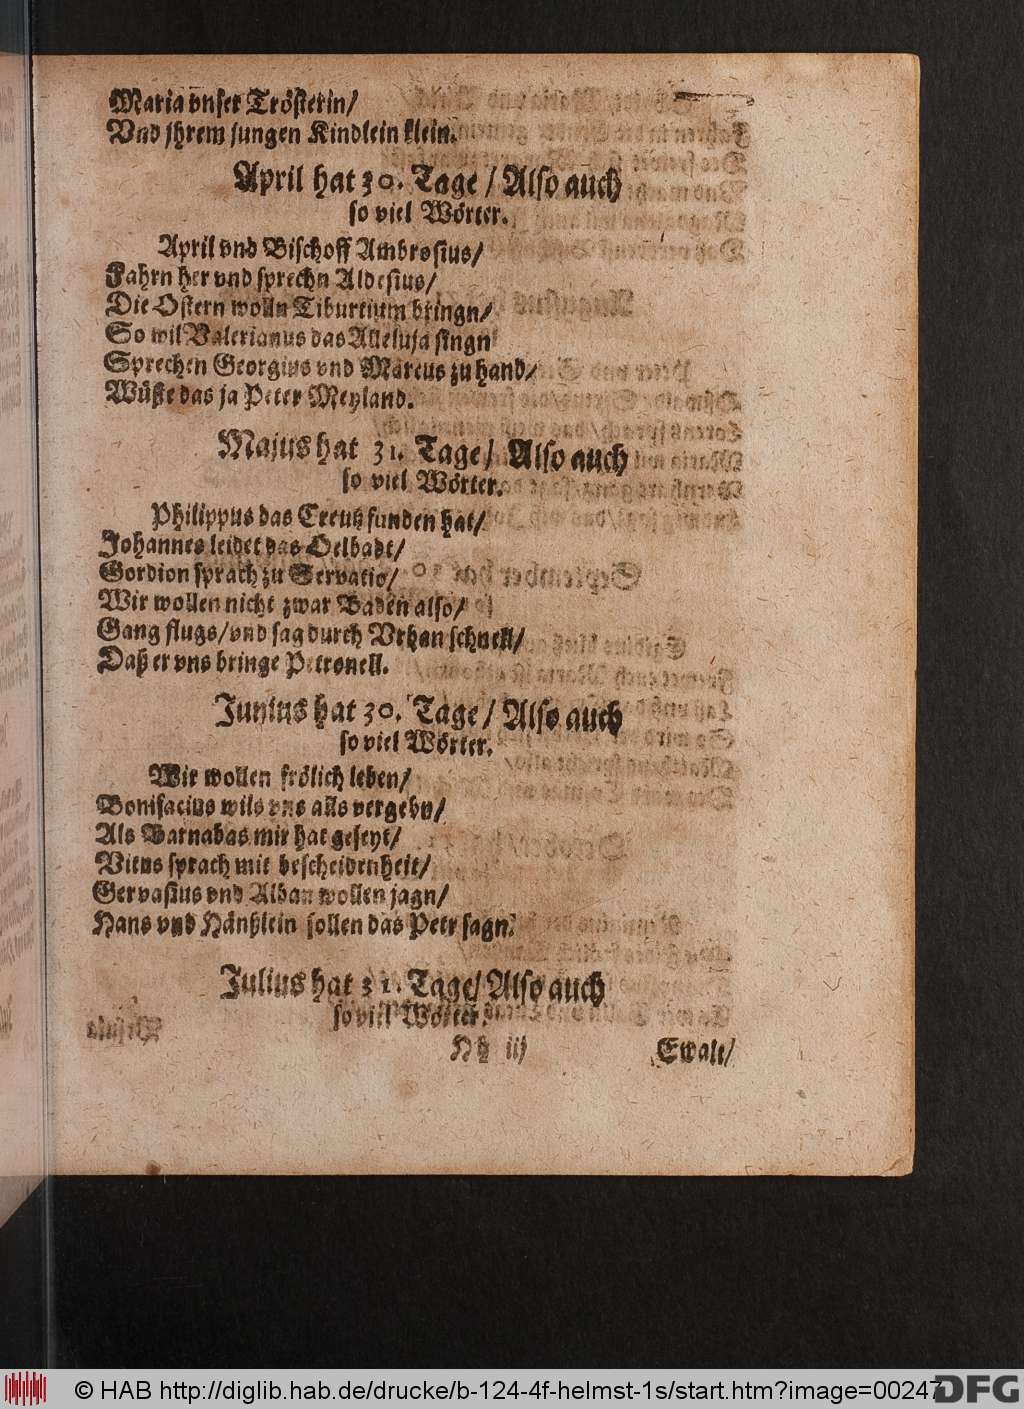 Maria vnser Trösterin/
Vnd jhrem jungen Kindlein klein.
April hat 30. Tage / Also auch
so viel Wörter.
April vnd Bischoff Ambrosius/
Fahrn her vnd sprechn Aldesius/
Die Ostern wolln Tiburtium bringn/
So wil Valerianus das Alleluja singn
Sprechen Georgius vnd Marcus zu hand/
Wüste das ja Peter Meyland.
Majus hat 31. Tage/ Also auch
so viel Wörter.
Philippus das Creutz funden hat/
Johannes leidet das Oelbadt/
Gordion sprach zu Servatio/
Wir wollen nicht zwar Baden also/
Gang flugs/ vnd sag durch Vrban schnell/
Daß er vns bringe Petronell.
Junius hat 30. Tage/ Also auch
so viel Wörter.
Wir wollen frölich leben/
Bonifacius wils vns alls vergebn/
Als Barnabas mir hat geseyt/
Vitus sprach mit bescheidenheit/
Gervasius vnd Alban wollen jagn/
Hans vnd Hänßlein sollen das Petr sagn.
Julius hat 31. Tage/ Also auch
so viel Wörter.
Hh iij Ewalt/
© HAB http://diglib.hab.de/drucke/b-124-4f-helmst-1s/start.htm?image=00247
DFG